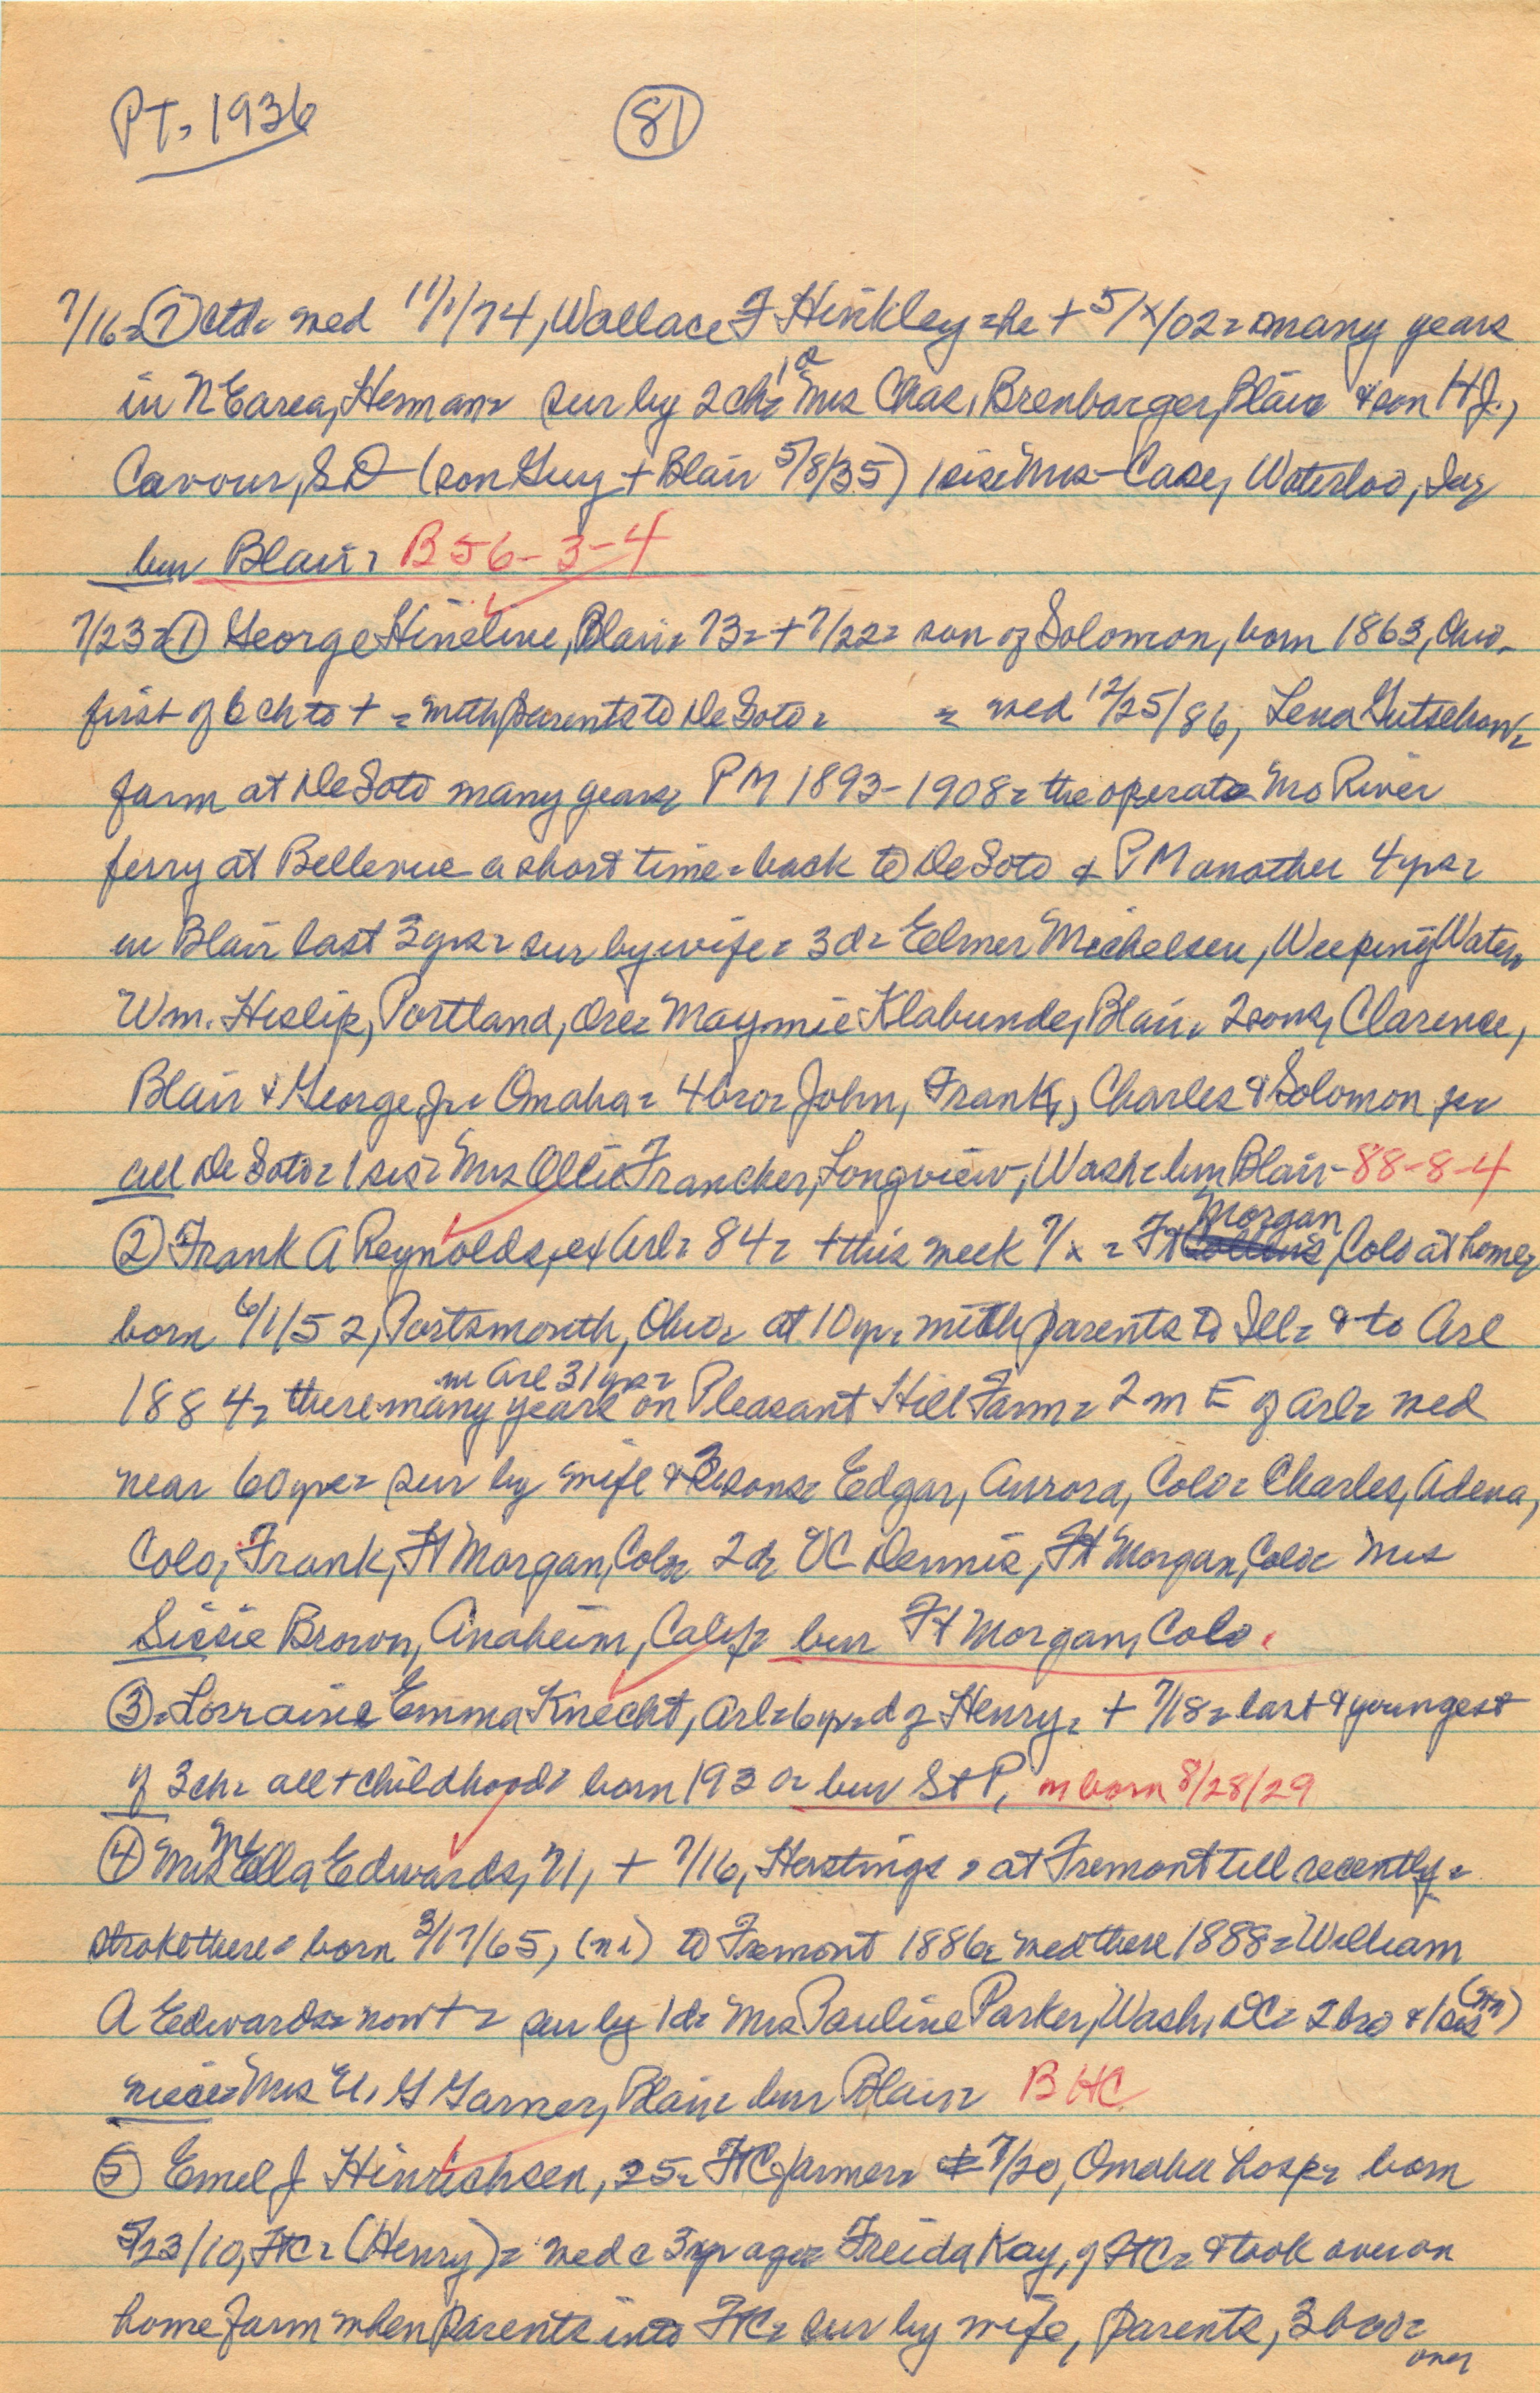 PT, 1936
81
7/16= (7) ctd= wed 11/1/74, Wallace F Hinkley =he + 5/x/02= many years
in NE area, Herman= sur by 2 ch= 1 d Mrs Chas, Brenbarger, Blair & son H J.,
Cavour, S D (son Guy + Blair 5/8/35) 1 sis= Mrs - Case, Waterloo, Ia=
bur Blair= B 56-3-4
7/23= (1) George Hineline, Blair= 73= + 7/22= son of Solomon, born 1863, Ohio=
first of 6 ch to + = with parents to De Soto= = wed 12/25/86, Lena Gutschow=
farm at De Soto many years= PM 1893-1908= the operate Mo River
ferry at Bellevue a short time= back to De Soto & PM another 4 yrs=
in Blair last 3 yrs= sur by wife= 3 d= Elmer Michelsen, Weeping Water=
Wm. Hislip, Portland, Ore= Maymie Klabunde, Blair= 2 sons, Clarence,
Blair & George Jr= Omaha= 4 bro= John, Frank, Charles & Solomon Jr=
all De Soto= 1 sis= Mrs Ollie Francher, Longview, Wash= bur Blair - 88-8-4
(2) Frank A Reynolds, ex Arl= 84= + this week 7/x = Ft Morgan, Colo at home=
born 6/1/52, Portsmouth, Ohio= at 10 yr= with parents to Ill= & to Arl
1884= there many years on Pleasant Hill Farm= 2 m E of Arl= wed
in Arl 31 yrs=
near 60 yrs= sur by wife & 3 sons= Edgar, Aurora, Colo= Charles, Adena,
Colo, Frank, Ft Morgan, Colo= 2 d= V C Dennis, Ft Morgan, Colo= Mrs
Sissie Brown, Anaheim, Calif= bur Ft Morgan, Colo.
(3)= Lorraine Emma Knecht, Arl= 6 yr= d of Henry= + 7/18= last & youngest
of 3 ch= all + childhood= born 1930= bur St P, m born 8/28/29
(4) Mrs Ella Edwards, 71, + 7/16, Hastings = at Fremont till recently=
stroke there= born 3/17/65, (ni) to Fremont 1886= wed there 1888= William
A Edwards= now + = sur by 1 d= Mrs Pauline Parker, Wash, DC= 2 bro & 1 sis (nn)
niece= Mrs E. G Garner, Blair= bur Blair= B HC
(5) Emel J Hinrichsen, 25= FtC farmer= + 7/20, Omaha hosp= born
5/23/10, FtC= (Henry)= wed c 3 yr ago= Freida Kay, of FtC= & took over on
home farm when parents into FtC= sur by wife, parents, 3 bro=
over